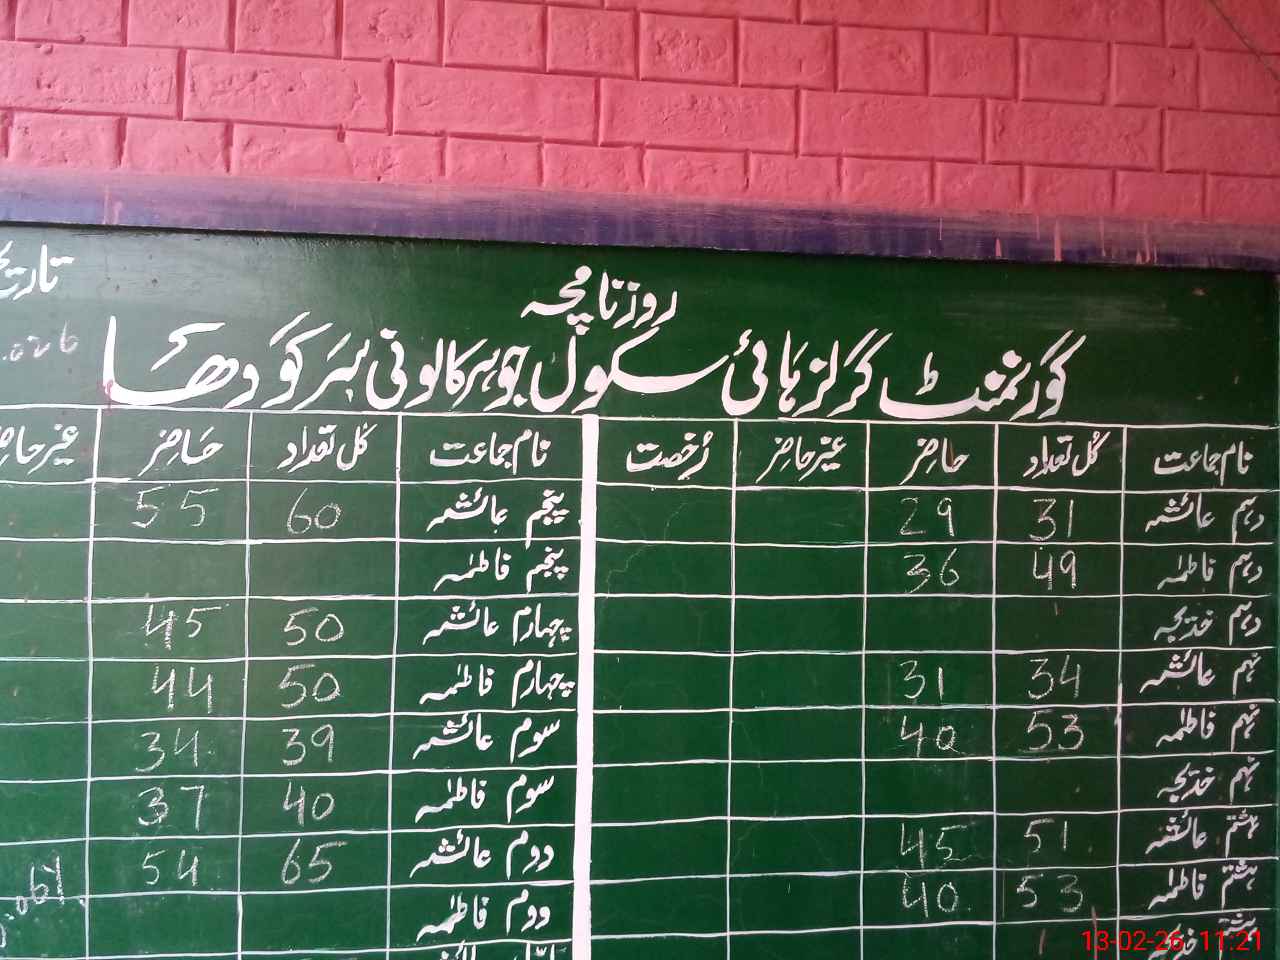 تاریخ
روزنامچہ
گورنمنٹ گرلز ہائی سکول جوہر کالونی سرگودھا
نام جماعت کل تعداد حاضر غیر حاضر رخصت نام جماعت کل تعداد حاضر غیر حاضر
دہم عائشہ 31 29 پنجم عائشہ 60 55
دہم فاطمہ 49 36 پنجم فاطمہ
دہم خدیجہ چہارم عائشہ 50 45
نہم عائشہ 34 31 چہارم فاطمہ 50 44
نہم فاطمہ 53 40 سوم عائشہ 39 34
نہم خدیجہ سوم فاطمہ 40 37
ہشتم عائشہ 51 45 دوم عائشہ 65 54
ہشتم فاطمہ 53 40 دوم فاطمہ
ہشتم خدیجہ
13-02-26 11:21